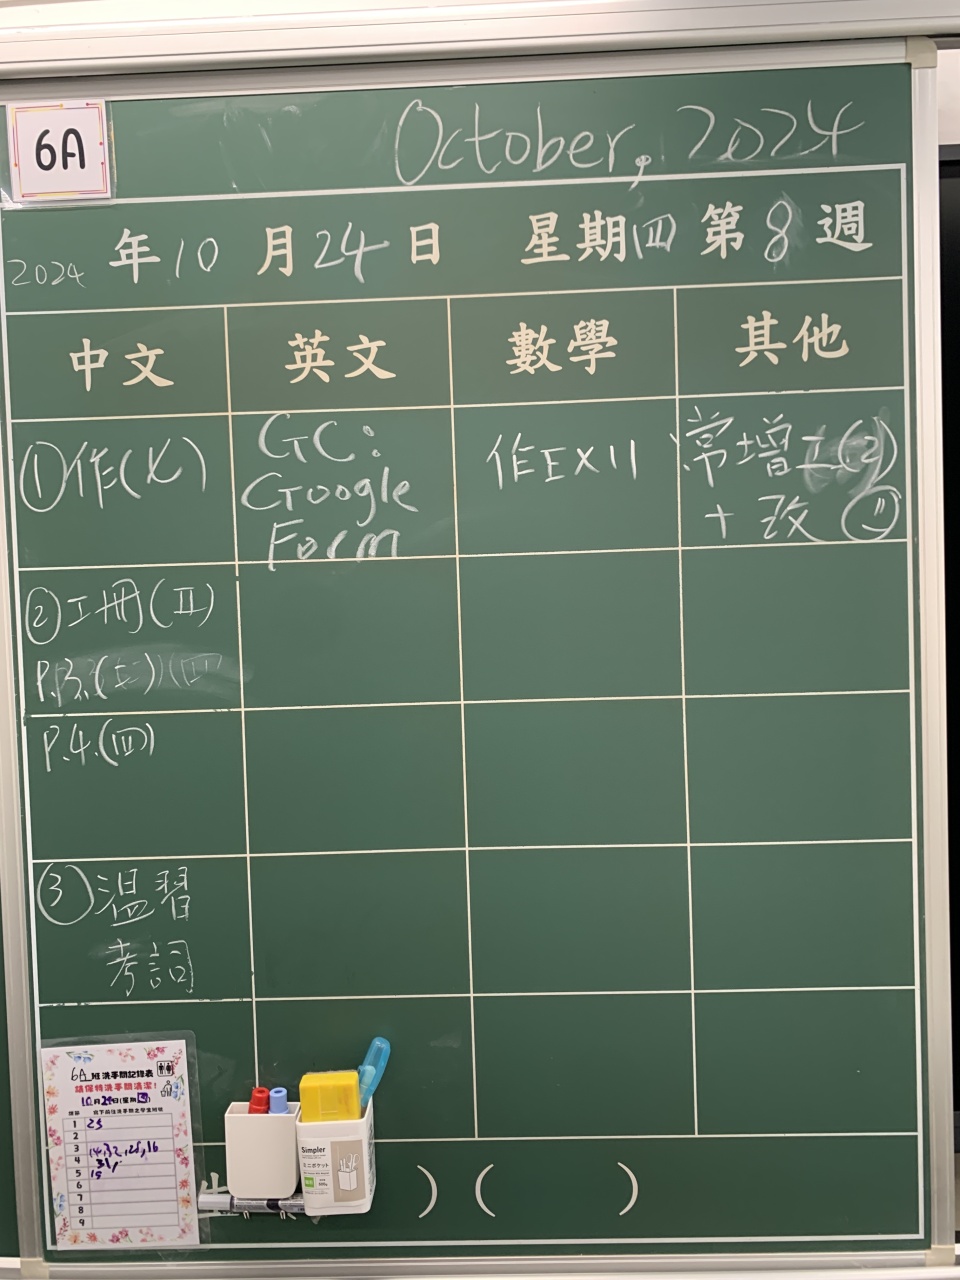 6A
October, 2024
2024 年 10 月 24 日 星期四 第 8 週
中文 英文 數學 其他
①作(X)
GC:
Google
Form
作EX11
常增工(2)
+ 改
②工冊(II)
P.3.(三)(四
P.4.(四)
③溫習
考詞
6A 班洗手間記錄表
請保持洗手間清潔!
10月24日(星期四)
1 23
2
3 14,32,28,16
4 31,
5 19
6
7
8
9
Simpler
ミニポケット
) ( )